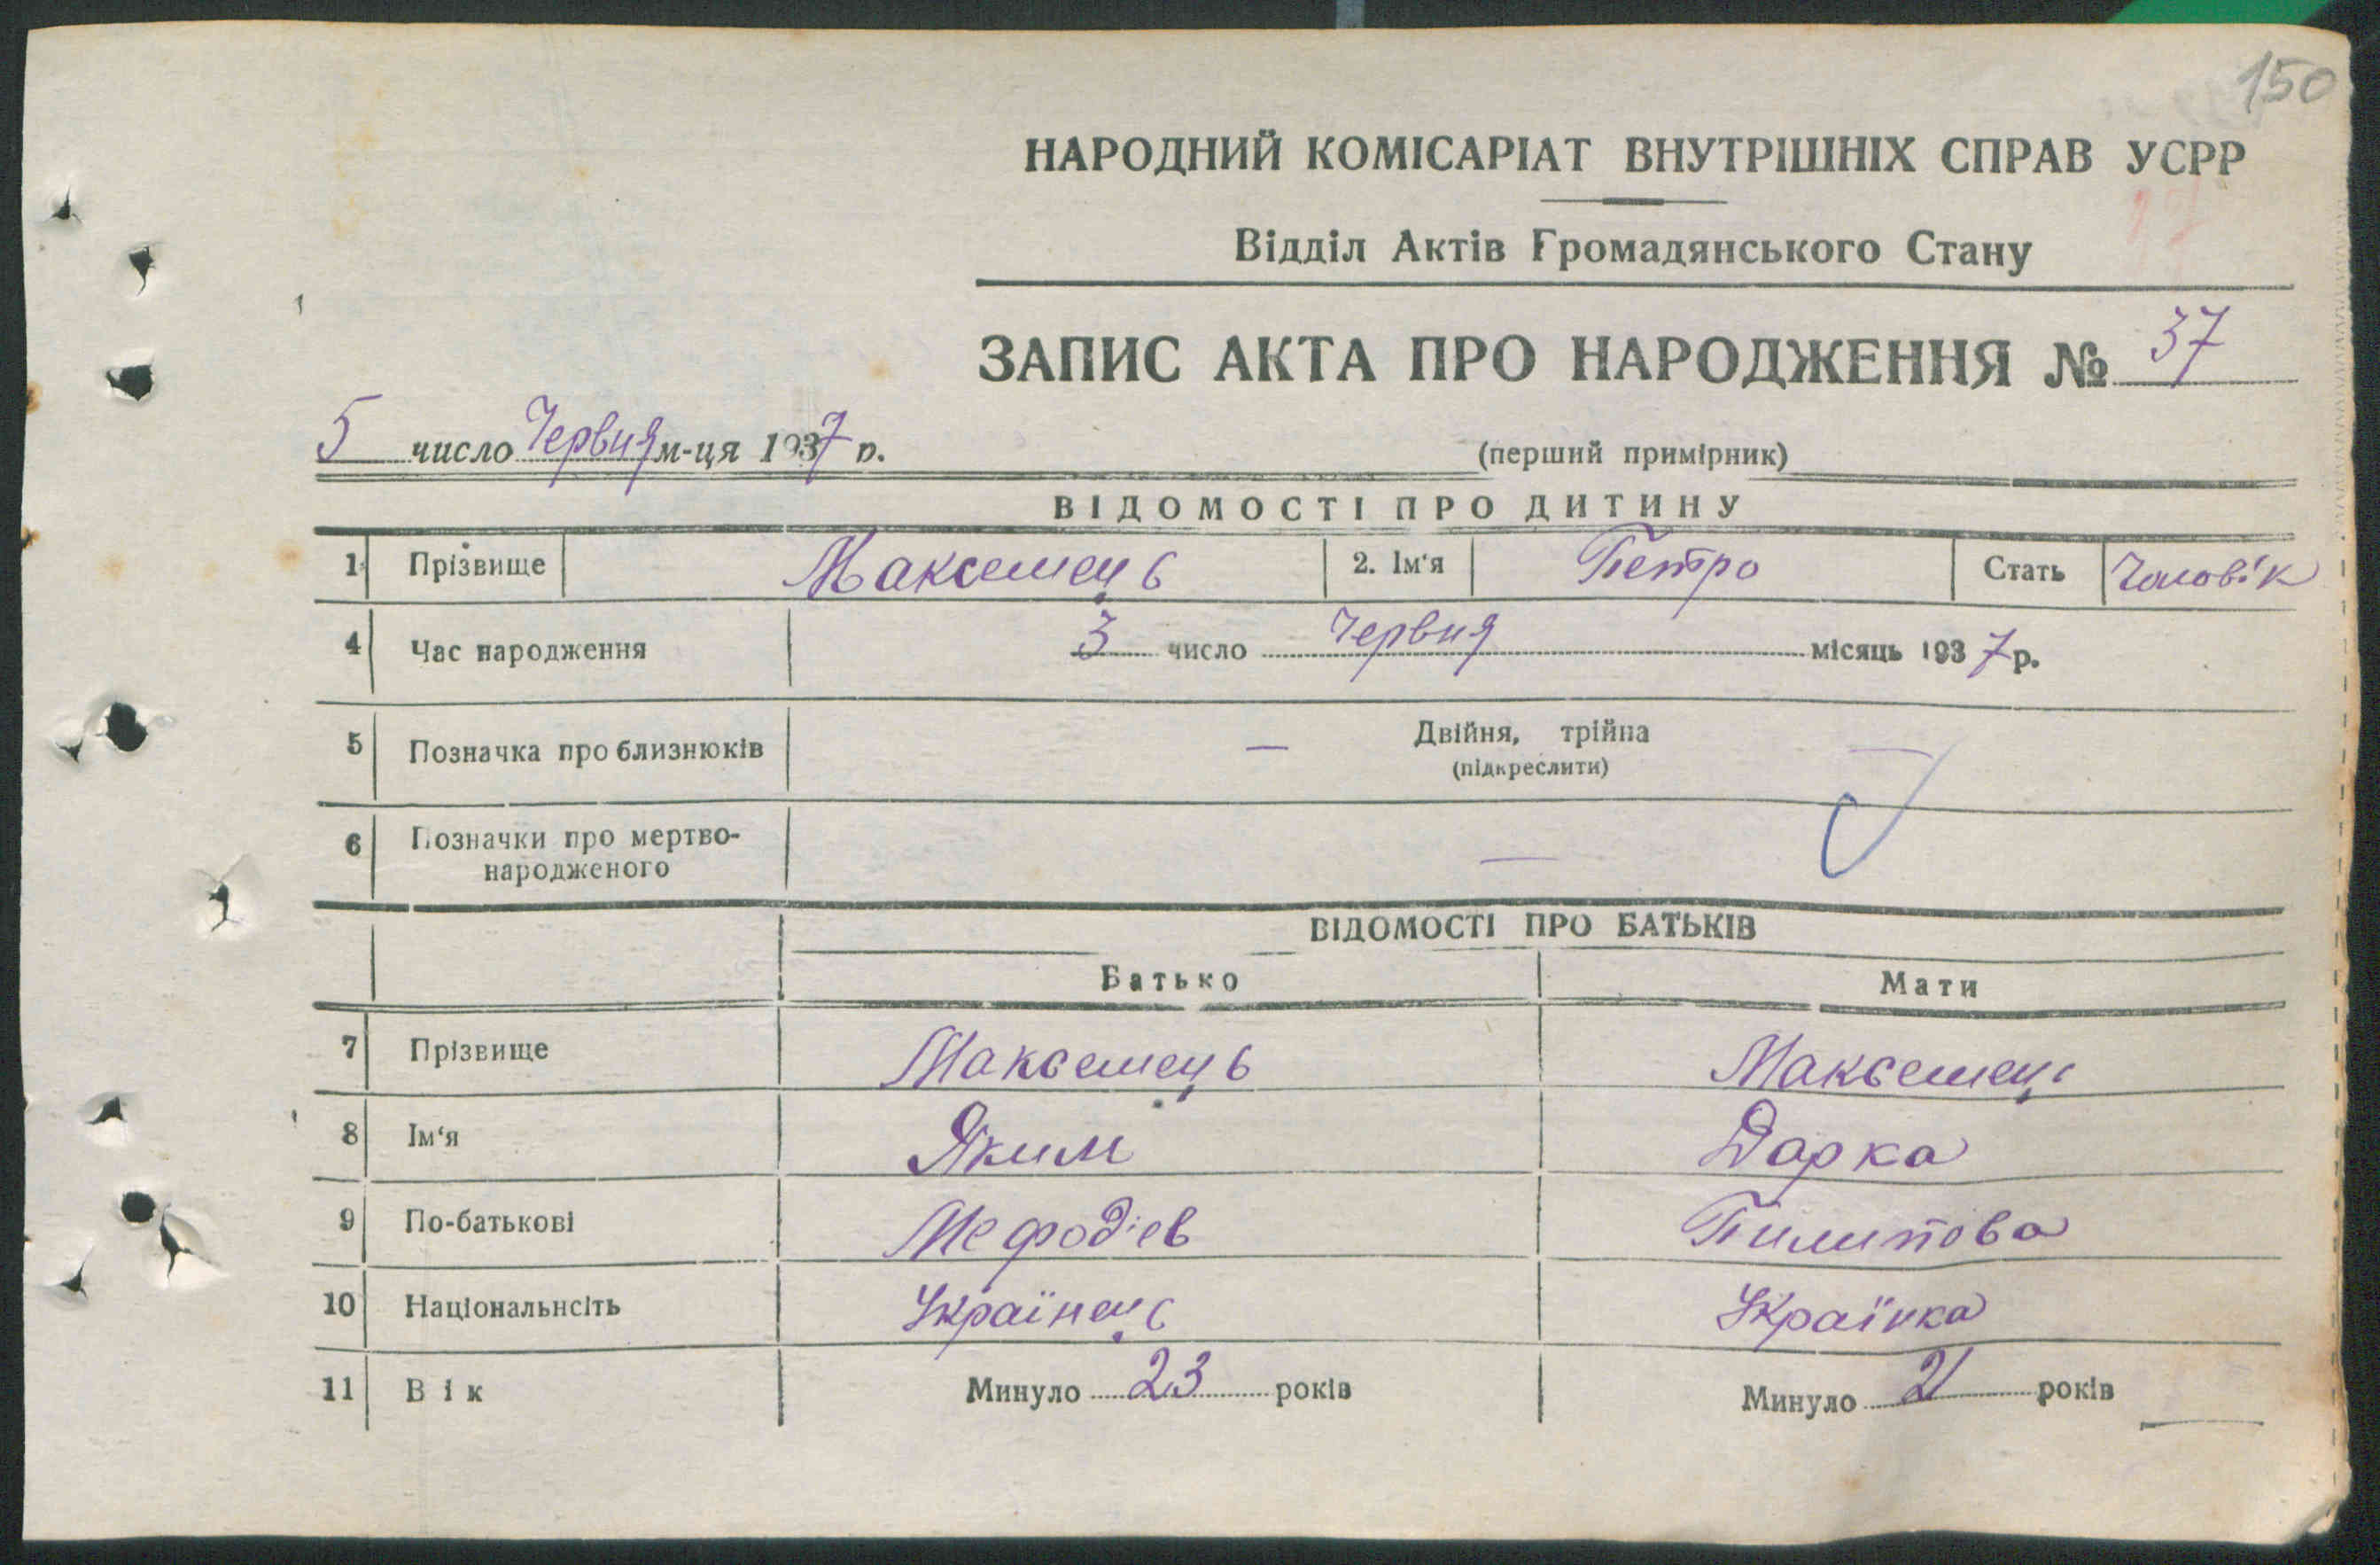 150
НАРОДНИЙ КОМІСАРІАТ ВНУТРІШНІХ СПРАВ УСРР
Відділ Актів Громадянського Стану
ЗАПИС АКТА ПРО НАРОДЖЕННЯ № 37
5 число Червня м-ця 1937 р.
(перший примірник)
ВІДОМОСТІ ПРО ДИТИНУ
1 Прізвище Максемець 2. Ім'я Петро Стать Чоловік
4 Час народження 3 число Червня місяць 1937 р.
5 Позначка про близнюків — Двійня, трійна
(підкреслити)
6 Позначки про мертво-
народженого —
ВІДОМОСТІ ПРО БАТЬКІВ
Батько Мати
7 Прізвище Максемець Максемець
8 Ім'я Яким Дарка
9 По-батькові Мефодієв Пилипова
10 Національнсіть Українець Українка
11 Вік Минуло 23 років Минуло 21 років